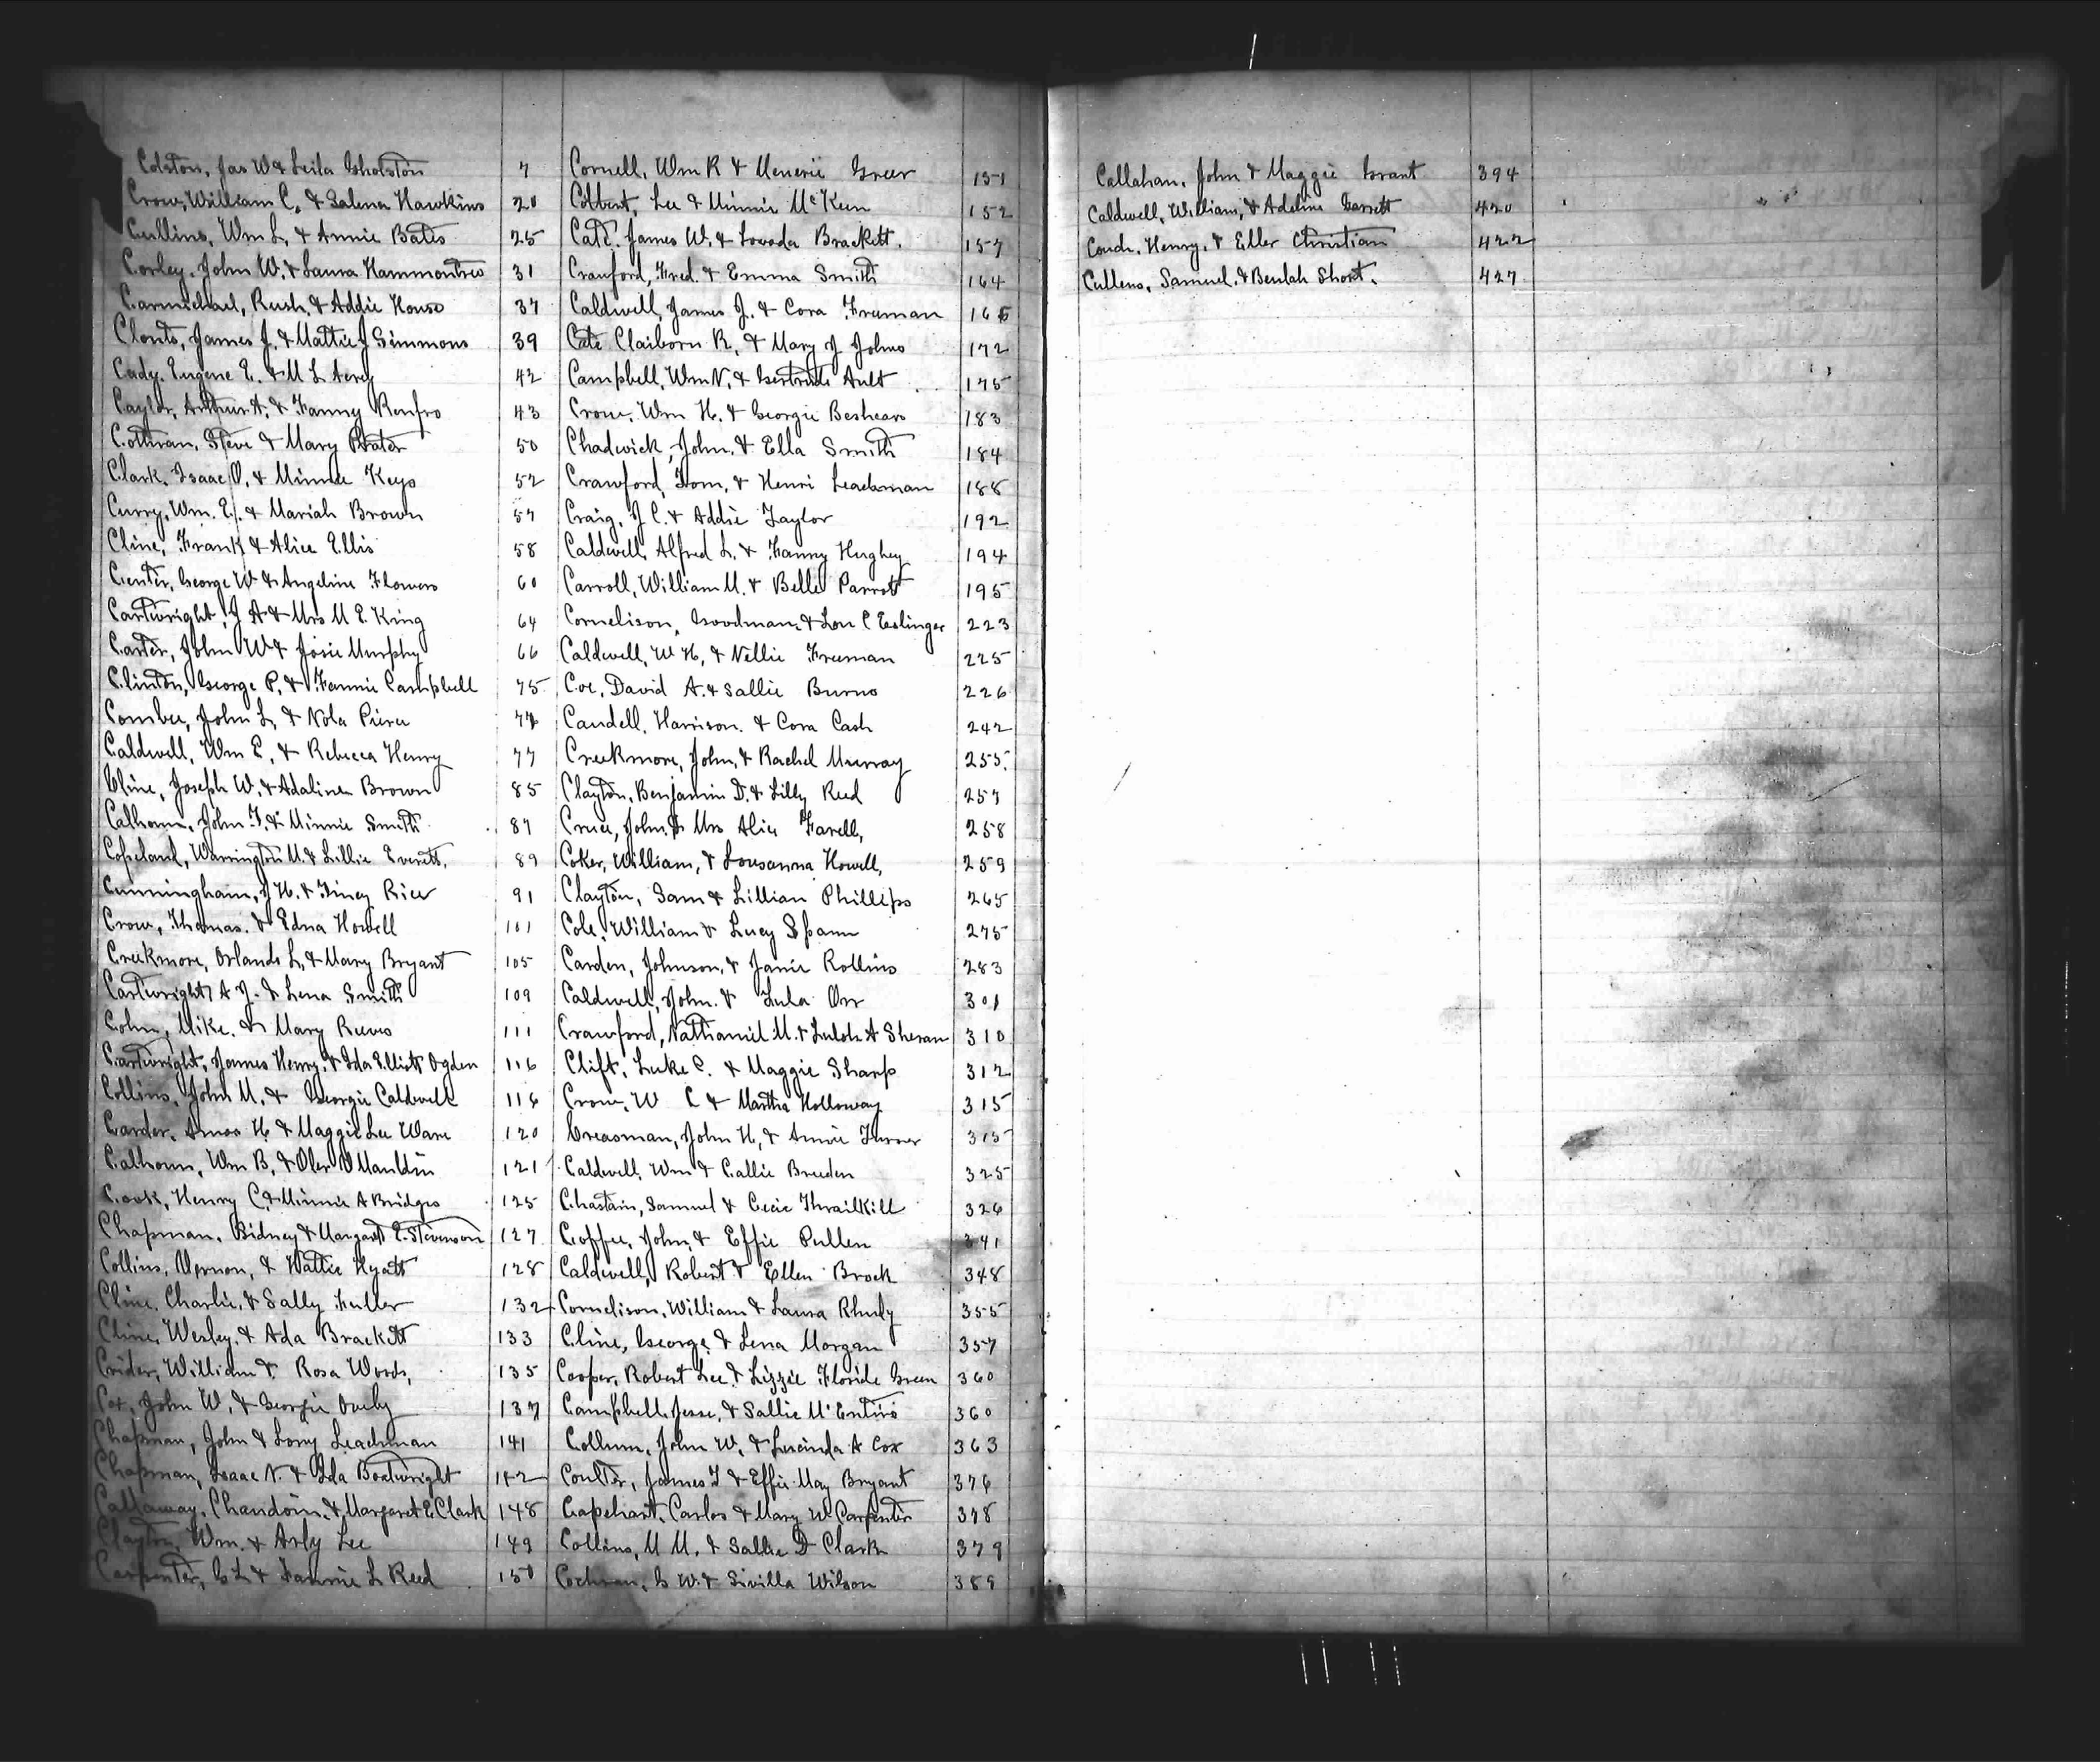 Colston, Jas W & Leila Gholston 7
Crow, William C. & Salena Hawkins 20
Cullins, Wm L. & Annie Bates 25
Corley, John W. & Laura Hammontree 31
Carmichael, Rush, & Addie House 37
Clonts, James J. & Mattie J Simmons 39
Cady, Eugene E. & M L Acrey 42
Caylor, Arthur A. & Fanny Renfro 43
Cothran, Steve & Mary Prater 50
Clark, Isaac O, & Minnie Keys 52
Curry, Wm. E. & Mariah Brown 57
Cline, Frank & Alice Ellis 58
Center, George W & Angeline Flowers 60
Cartwright, J A & Mrs M E. King 64
Carter, John W & Josie Murphy 66
Clinton, George P. & Fannie Campbell 75
Combee, John L. & Nola Pierce
Caldwell, Wm E. & Rebecca Henry 77
Cline, Joseph W. & Adaline Brown 85
Calhoun, John T. & Minnie Smith 87
Copeland, Warrington M. & Lillie Everett, 89
Cunningham, J H. & Finey Rice 91
Crow, Thomas. & Edna Howell 101
Creekmore, Orlando L, & Mary Bryant 105
Cartwright, A J. & Lena Smith 109
Cohn, Mike. & Mary Reeves 111
Cartwright, James Henry, & Ida Elliott Ogden 116
Collins, John M. & Georgie Caldwell 116
Carder, Amos H, & Maggie Lee Ware 120
Calhoun, Wm B. & Oler O Mauldin 121
Cook, Henry C, & Minnie A Bridges 125
Chapman, Sidney & Margaret E. Stevenson 127
Collins, Vernon, & Hattie Hyatt 128
Cline, Charlie, & Sally Fuller 132
Cline, Wesley, & Ada Brackett 133
Crider, William & Rosa Woods, 135
Cox, John W, & Georgie Ownby 137
Chapman, John & Lony Leachman 141
Chapman, Isaac N. & Ida Boatwright 142
Callaway, Chandoin, & Margaret E Clark 148
Clayton, Wm. & Arly Lee 149
Carpenter, G L & Fannie L Reed 150
Cornell, Wm R & Menerie Greer 151
Colbert, Lee & Minnie McKeen 152
Cate, James W. & Lovada Brackett. 157
Crawford, Fred. & Emma Smith 164
Caldwell, James J. & Cora Freeman 166
Cate Claiborn R, & Mary J Johns 172
Campbell, Wm N. & Gertrude Ault 175
Crow, Wm H. & Georgie Beshears 183
Chadwick, John, & Ella Smith 184
Crawford, Tom, & Henri Leachman 188
Craig, J C. & Addie Taylor 192
Caldwell, Alfred L. & Fanny Hughey 194
Carroll, William M. & Belle Parrott 195
Cornelison, Goodman, & Lou C Eslinger 223
Caldwell, W H, & Nellie Freeman 225
Coe, David A. & Sallie Burns 226
Caudell, Harrison. & Cora Cash 242
Creekmore, John, & Rachel Murray 255
Clayton, Benjamin D. & Lilly Reed 257
Cruce, John, & Mrs Alice Farell, 258
Coker, William, & Lousanna Howell, 259
Clayton, Sam & Lillian Phillips 265
Cole, William & Lucy Spann 275
Carden, Johnson, & Janie Rollins 283
Caldwell, John. & Lula Orr 301
Crawford, Nathaniel M. & Lulah A Sheran 310
Clift, Luke C. & Maggie Sharp 312
Crow, W C & Martha Holloway 315
Creasman, John H, & Annie Turner 315
Caldwell, Wm & Callie Breeden 325
Chastain, Samuel & Cecie Thrailkill 326
Coffee, John, & Effie Pullen 341
Caldwell, Robert & Ellen Brock 348
Cornelison, William & Laura Rhudy 355
Cline, George, & Lena Morgan 357
Cooper, Robert Lee. & Lizzie Floride Green 360
Campbell, Jesse, & Sallie McEntire 360
Collum, John W. & Lucinda A Cox 363
Coulter, James T & Effie May Bryant 376
Capehart, Carlos & Mary W Carpenter 378
Collins, M M, & Sallie D Clark 379
Cochran, G W. & Sivilla Wilson 389
Callahan, John & Maggie Grant 394
Caldwell, William, & Adeline Garrett 420
Couch, Henry, & Eller Christian 422
Cullens, Samuel, & Beulah Short. 427